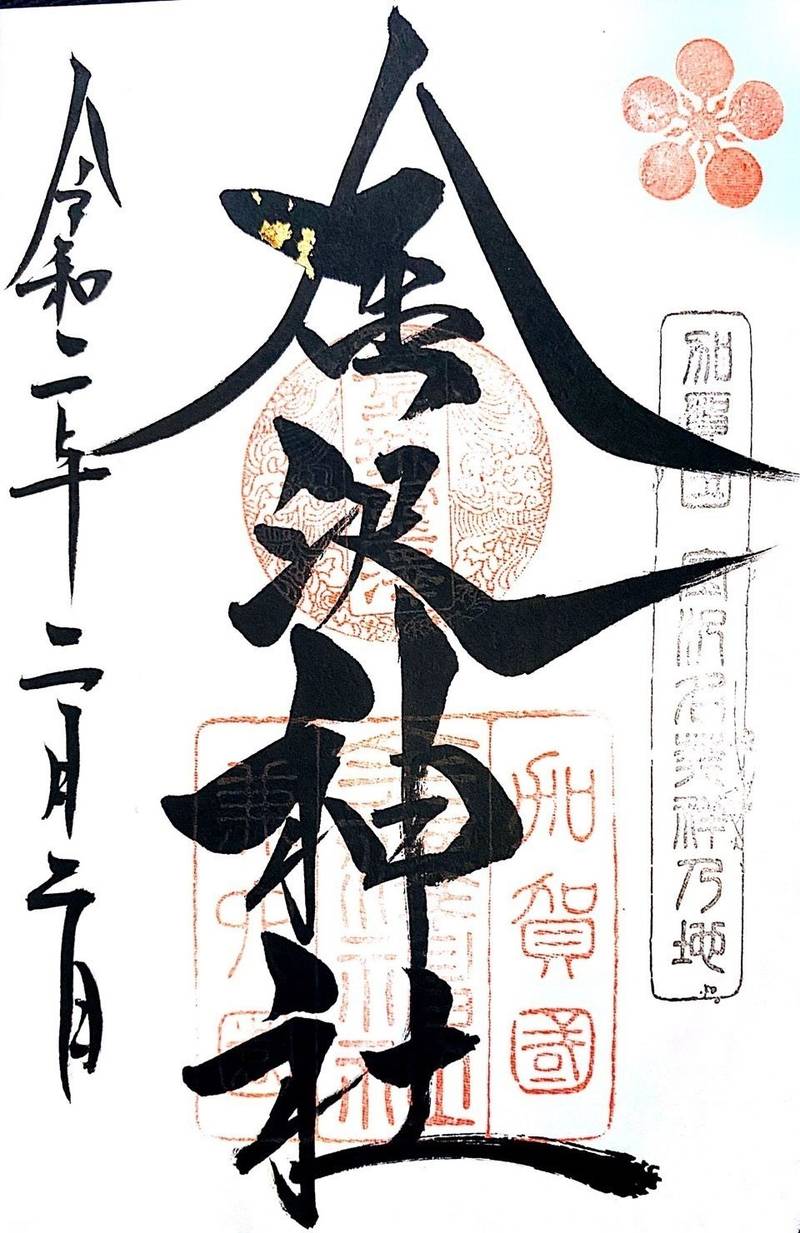 加賀国 金沢名発祥乃地
金沢神社
加賀國
兼六園
令和二年二月二日